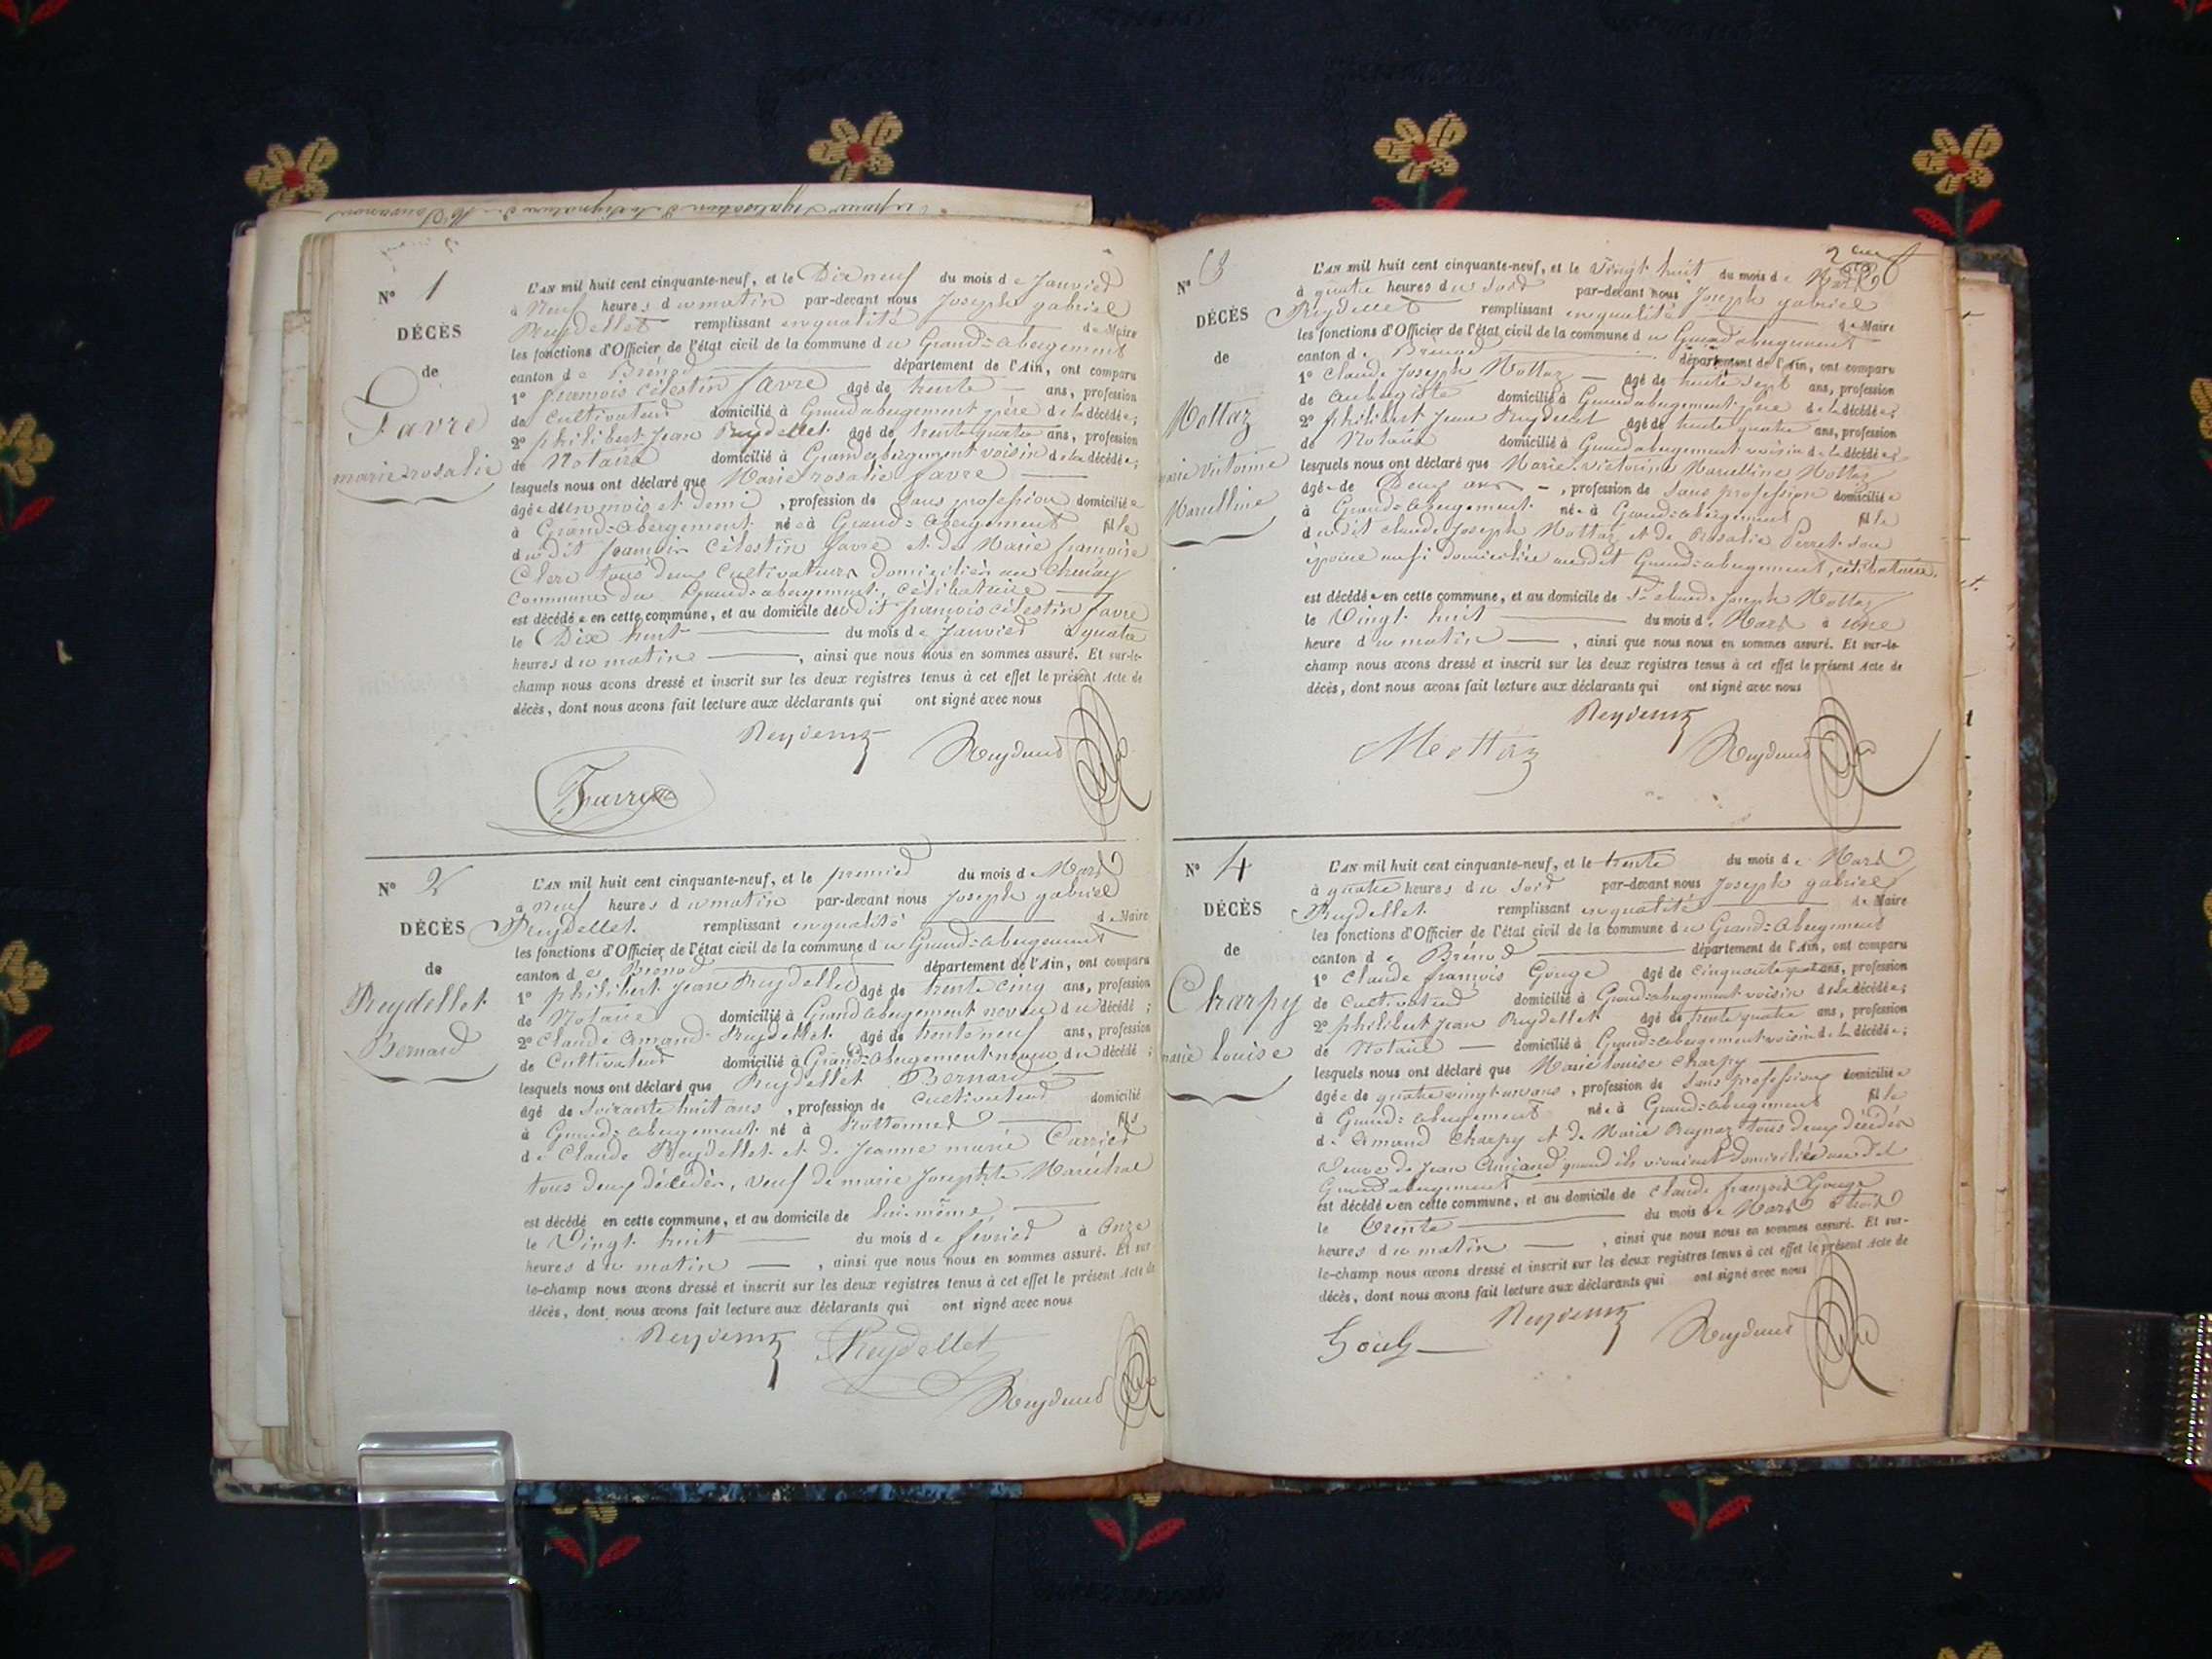 N° 1
DÉCÈS
de
Favre
marie rosalie
L'AN mil huit cent cinquante-neuf, et le Dix neuf du mois de Janvier
à Neuf heures du matin par-devant nous Joseph gabriel
Reydellet remplissant en qualité de Maire
les fonctions d'Officier de l'état civil de la commune du Grand=abergement
canton de Brenod département de l'Ain, ont comparu
1° françois célestin favre âgé de trente ans, profession
de Cultivateur domicilié à Grand abergement père de la décédée;
2° philibert Jean Reydellet âgé de trente quatre ans, profession
de Notaire domicilié à Grand abergement voisin de la décédée;
lesquels nous ont déclaré que Marie rosalie favre
âgée de un mois et demi, profession de Sans profession domiciliée
à Grand=abergement née à Grand=abergement fille
dudit françois Célestin favre et de Marie françoise
Clerc tous deux Cultivateurs domiciliés au
Commune du Grand=abergement, célibataire
est décédée en cette commune, et au domicile dudit françois célestin favre
le Dix huit du mois de Janvier à quatre
heures du matin, ainsi que nous nous en sommes assuré. Et sur-le-
champ nous avons dressé et inscrit sur les deux registres tenus à cet effet le présent Acte de
décès, dont nous avons fait lecture aux déclarants qui ont signé avec nous
Favre
N° 2
DÉCÈS
de
Reydellet
Bernard
L'AN mil huit cent cinquante-neuf, et le premier du mois de Mars
à neuf heures du matin par-devant nous Joseph gabriel
Reydellet remplissant en qualité de Maire
les fonctions d'Officier de l'état civil de la commune du Grand=abergement
canton de Brenod département de l'Ain, ont comparu
1° philibert Jean Reydellet âgé de trente cinq ans, profession
de Notaire domicilié à Grand abergement neveu du décédé;
2° Claude Amand Reydellet âgé de trente neuf ans, profession
de Cultivateur domicilié à Grand=abergement neveu du décédé;
lesquels nous ont déclaré que Reydellet Bernard
âgé de soixante huit ans, profession de Cultivateur domicilié
à Grand=abergement né à fils
de Claude Reydellet et de Jeanne marie Carrier
tous deux décédés, veuf de marie Josephte Maréchal
est décédé en cette commune, et au domicile de lui-même,
le Vingt huit du mois de février à Onze
heures du matin, ainsi que nous nous en sommes assuré. Et sur
le-champ nous avons dressé et inscrit sur les deux registres tenus à cet effet le présent Acte de
décès, dont nous avons fait lecture aux déclarants qui ont signé avec nous
Reydellet
N° 3
DÉCÈS
de
Mottaz
marie Victoire
Marcelline
L'AN mil huit cent cinquante-neuf, et le Vingt huit du mois de Mars
à quatre heures du soir par-devant nous Joseph gabriel
Reydellet remplissant en qualité de Maire
les fonctions d'Officier de l'état civil de la commune du Grand abergement
canton de Brenod département de l'Ain, ont comparu
1° Claude Joseph Mottaz âgé de trente sept ans, profession
de Aubergiste domicilié à Grand abergement père de la décédée;
2° philibert Jean Reydellet âgé de trente quatre ans, profession
de Notaire domicilié à Grand abergement voisin de la décédée;
lesquels nous ont déclaré que Marie victoire Marcelline Mottaz
âgée de Deux ans, profession de Sans profession domiciliée
à Grand=abergement née à Grand=abergement fille
dudit Claude Joseph Mottaz et de Rosalie Perret son
épouse aussi domiciliée audit Grand=abergement, célibataire.
est décédée en cette commune, et au domicile de Claude Joseph Mottaz
le Vingt huit du mois de Mars à une
heure du matin, ainsi que nous nous en sommes assuré. Et sur-le-
champ nous avons dressé et inscrit sur les deux registres tenus à cet effet le présent Acte de
décès, dont nous avons fait lecture aux déclarants qui ont signé avec nous
Mottaz
N° 4
DÉCÈS
de
Charpy
marie Louise
L'AN mil huit cent cinquante-neuf, et le trente du mois de Mars
à quatre heures du soir par-devant nous Joseph gabriel
Reydellet remplissant en qualité de Maire
les fonctions d'Officier de l'état civil de la commune du Grand=abergement
canton de Brénod département de l'Ain, ont comparu
1° Claude françois Gouge âgé de cinquante ans, profession
de Cultivateur domicilié à Grand=abergement voisin de la décédée;
2° philibert Jean Reydellet âgé de trente quatre ans, profession
de Notaire domicilié à Grand=abergement voisin de la décédée;
lesquels nous ont déclaré que Marie louise Charpy
âgée de quatre vingt un ans, profession de Sans profession domiciliée
à Grand=abergement née à Grand=abergement fille
de Amand Charpy et de Marie tous deux décédés
Veuve de Jean quand ils vivaient domiciliés au dit
Grand abergement
est décédée en cette commune, et au domicile de Claude françois Gouge
le trente du mois de Mars à trois
heures du matin, ainsi que nous nous en sommes assuré. Et sur-
le-champ nous avons dressé et inscrit sur les deux registres tenus à cet effet le présent Acte de
décès, dont nous avons fait lecture aux déclarants qui ont signé avec nous